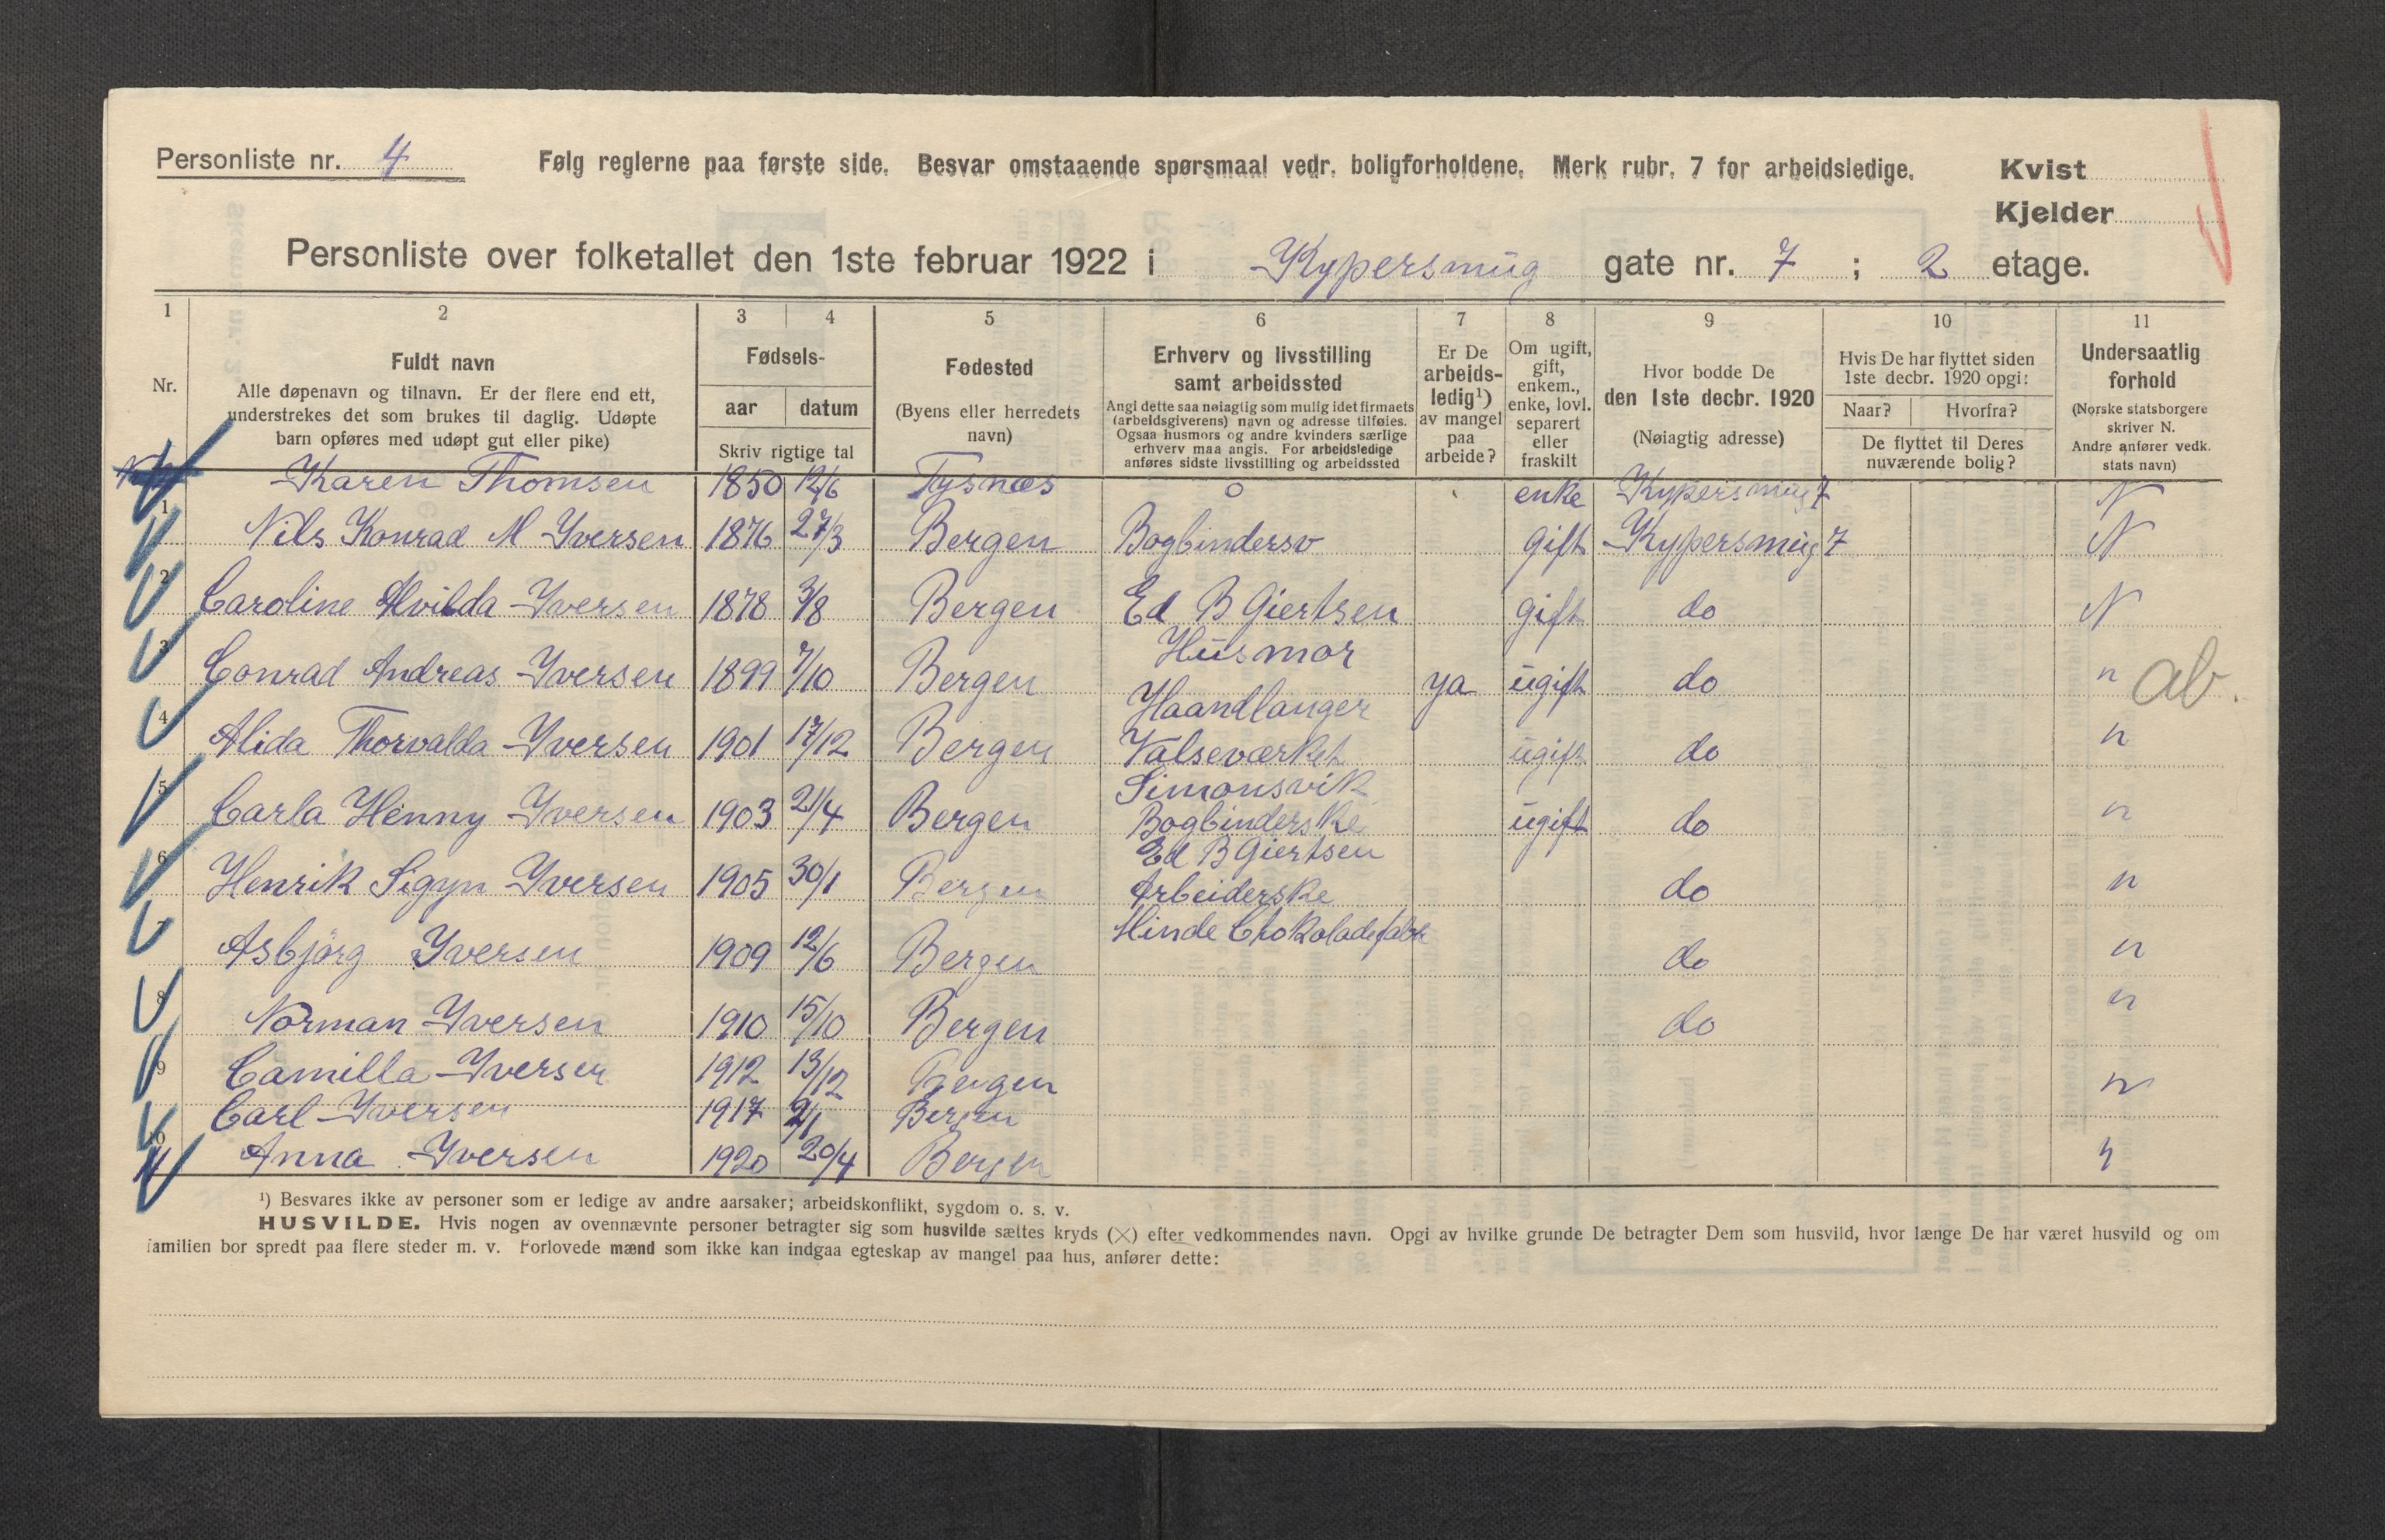 Personliste nr. 4
Følg reglerne paa første side. Besvar omstaaende spørsmaal vedr. boligforholdene. Merk rubr. 7 for arbeidsledige.
Kvist
Kjelder
Personliste over folketallet den 1ste februar 1922 i Kypersmug gate nr. 7 ; 2 etage.
1 2 3 4 5 6 7 8 9 10 11
Nr.
Fuldt navn
Alle døpenavn og tilnavn. Er der flere end ett,
understrekes det som brukes til daglig. Udøpte
barn opføres med udøpt gut eller pike)
Fødsels-
aar datum
Skriv rigtige tal
Fødested
(Byens eller herredets
navn)
Erhverv og livsstilling
samt arbeidssted
Angi dette saa nøiagtig som mulig idet firmaets
(arbeidsgiverens) navn og adresse tilføies.
Ogsaa husmors og andre kvinders særlige
erhverv maa angis. For arbeidsledige
anføres sidste livsstilling og arbeidssted
Er De
arbeids-
ledig¹)
av mangel
paa
arbeide?
Om ugift,
gift,
enkem.,
enke, lovl.
separert
eller
fraskilt
Hvor bodde De
den 1ste decbr. 1920
(Nøiagtig adresse)
Hvis De har flyttet siden
1ste decbr. 1920 opgi:
Naar? Hvorfra?
De flyttet til Deres
nuværende bolig?
Undersaatlig
forhold
(Norske statsborgere
skriver N.
Andre anfører vedk.
stats navn)
Karen Thomsen 1850 12/6 Tysnæs o enke Kypersmug 7 N
1 Nils Konrad M Yversen 1876 27/3 Bergen Bogbindersv gift Kypersmug 7 N
2 Caroline Alvilda Yversen 1878 3/8 Bergen Ed B Giertsen gift do N
Husmor
3 Conrad Andreas Yversen 1899 7/10 Bergen ya ugift do n ab.
Haandlanger
4 Alida Thorvalda Yversen 1901 17/12 Bergen Valseværket ugift do n
Simonsvik
5 Carla Henny Yversen 1903 21/4 Bergen Bogbinderske ugift do n
Ed B Giertsen
6 Henrik Sigyn Yversen 1905 30/1 Bergen Arbeiderske do n
Hinde Chokoladefabr
7 Asbjørg Yversen 1909 12/6 Bergen do n
8 Norman Yversen 1910 15/10 Bergen do n
9 Camilla Yversen 1912 13/12 Bergen n
Carl Yversen 1917 2/1 Bergen
Anna Yversen 1920 20/4 Bergen n
¹) Besvares ikke av personer som er ledige av andre aarsaker; arbeidskonflikt, sygdom o. s. v.
HUSVILDE. Hvis nogen av ovennævnte personer betragter sig som husvilde sættes kryds (×) efter vedkommendes navn. Opgi av hvilke grunde De betragter Dem som husvild, hvor længe De har været husvild og om
familien bor spredt paa flere steder m. v. Forlovede mænd som ikke kan indgaa egteskap av mangel paa hus, anfører dette: